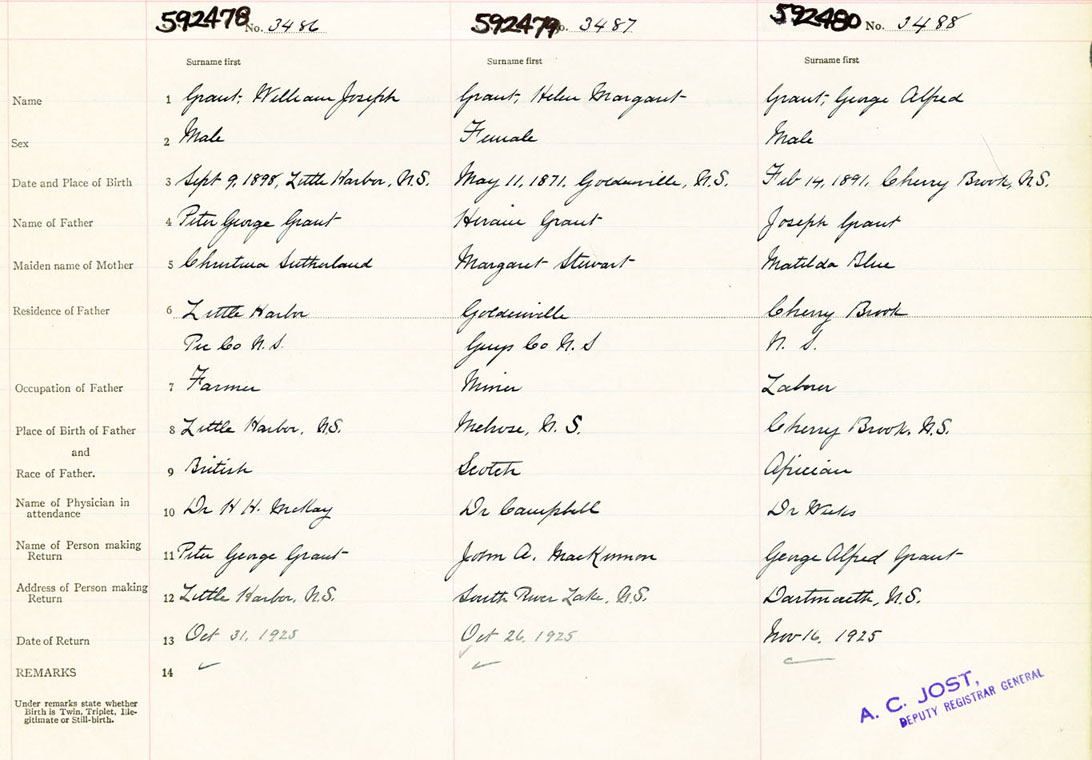 592478 No. 3486 592479 No. 3487 592480 No. 3488
Surname first Surname first Surname first
Name 1 Grant, William Joseph Grant, Helen Margaret Grant, George Alfred
Sex 2 Male Female Male
Date and Place of Birth 3 Sept 9, 1898, Little Harbor, N.S. May 11, 1871, Goldenville, N.S. Feb 14, 1891, Cherry Brook, N.S.
Name of Father 4 Peter George Grant Hiram Grant Joseph Grant
Maiden name of Mother 5 Christina Sutherland Margaret Stewart Matilda Blue
Residence of Father 6 Little Harbor Goldenville Cherry Brook
Pic Co N.S. Guys Co N.S N. S.
Occupation of Father 7 Farmer Miner Laborer
Place of Birth of Father 8 Little Harbor, N.S. Melrose, N. S. Cherry Brook, N.S.
and
Race of Father. 9 British Scotch African
Name of Physician in
attendance 10 Dr H H. McKay Dr Campbell Dr Weeks
Name of Person making
Return 11 Peter George Grant John A. MacKinnon George Alfred Grant
Address of Person making
Return 12 Little Harbor, N.S. South River Lake, N.S. Dartmouth, N.S.
Date of Return 13 Oct 31, 1925 Oct 26, 1925 Nov 16, 1925
REMARKS 14
Under remarks state whether
Birth is Twin, Triplet, Ille-
gitimate or Still-birth.
A. C. JOST,
DEPUTY REGISTRAR GENERAL